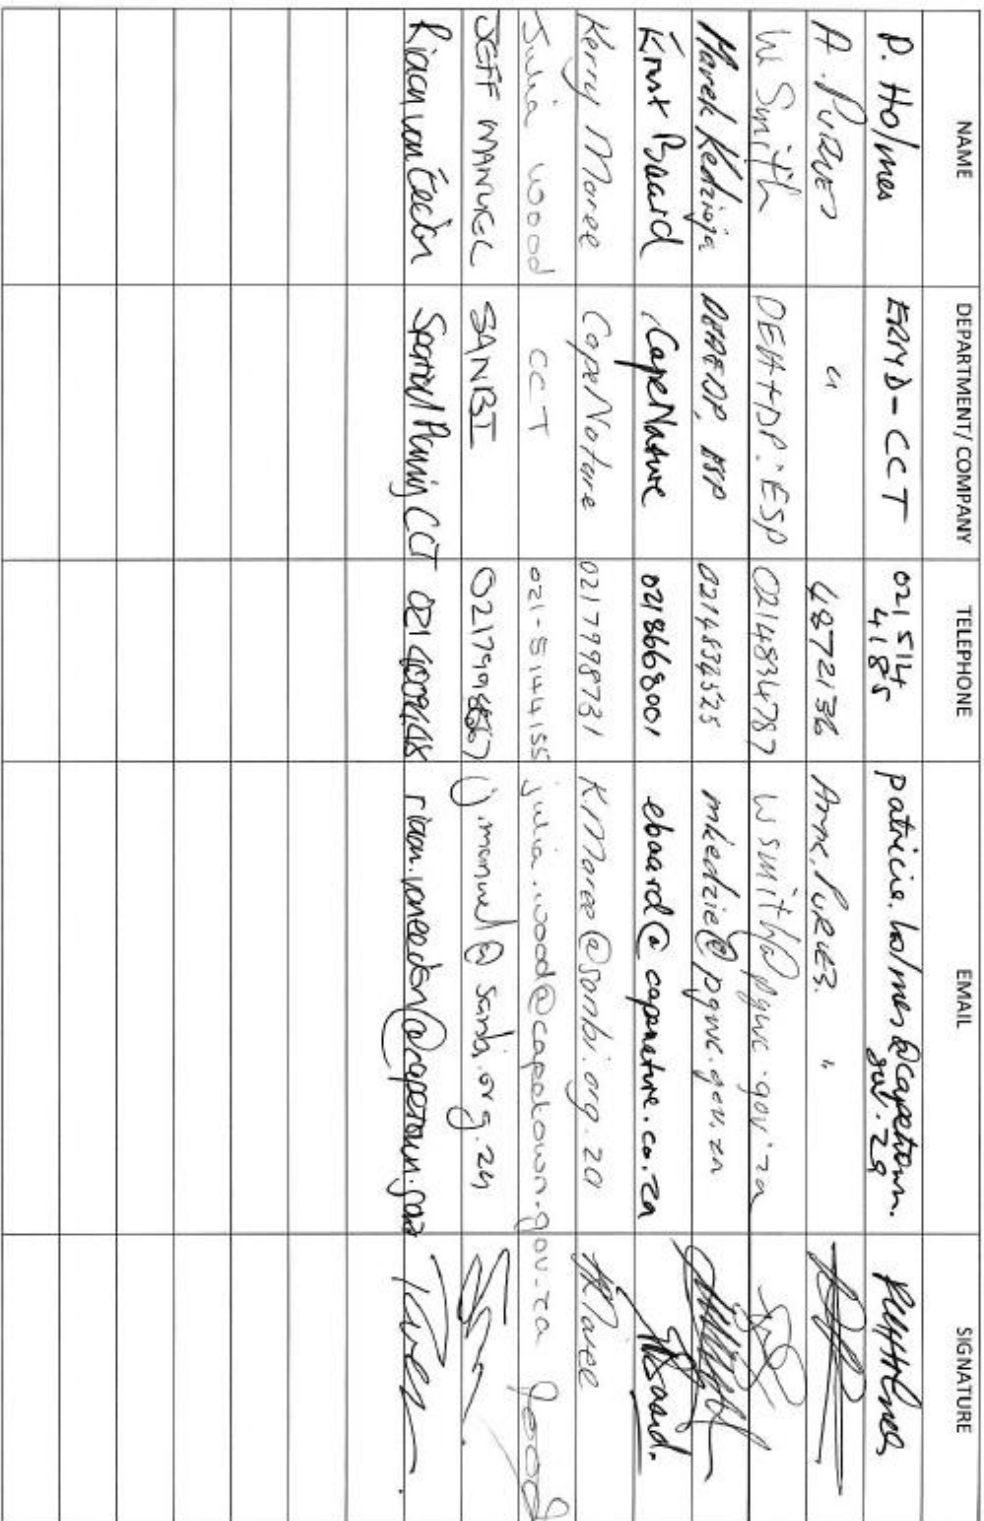 NAME DEPARTMENT/ COMPANY TELEPHONE EMAIL SIGNATURE
P. Holmes ERMD-CCT 021 514 4185 patricia.holmes@capetown.gov.za
A. PURVES " 4872136 Anne.PURVES. "
W Smith DEA+DP:ESP 0214834787 wsmith@pgwc.gov.za
Marek Kedzieja DEA&DP, 0214834525 mkedzie@pgwc.gov.za
Ernst Baard CapeNature 0218668001 ebaard@capenature.co.za
Kerry Maree CapeNature 0217998731 KMaree@sanbi.org.za KMaree
Julia Wood CCT 021-5144155 julia.wood@capetown.gov.za
JEFF MANUEL SANBI j.manuel@sanbi.org.za
Riaan van Eeden Spatial Planning CCT riaan.vaneeden@capetown.gov.za